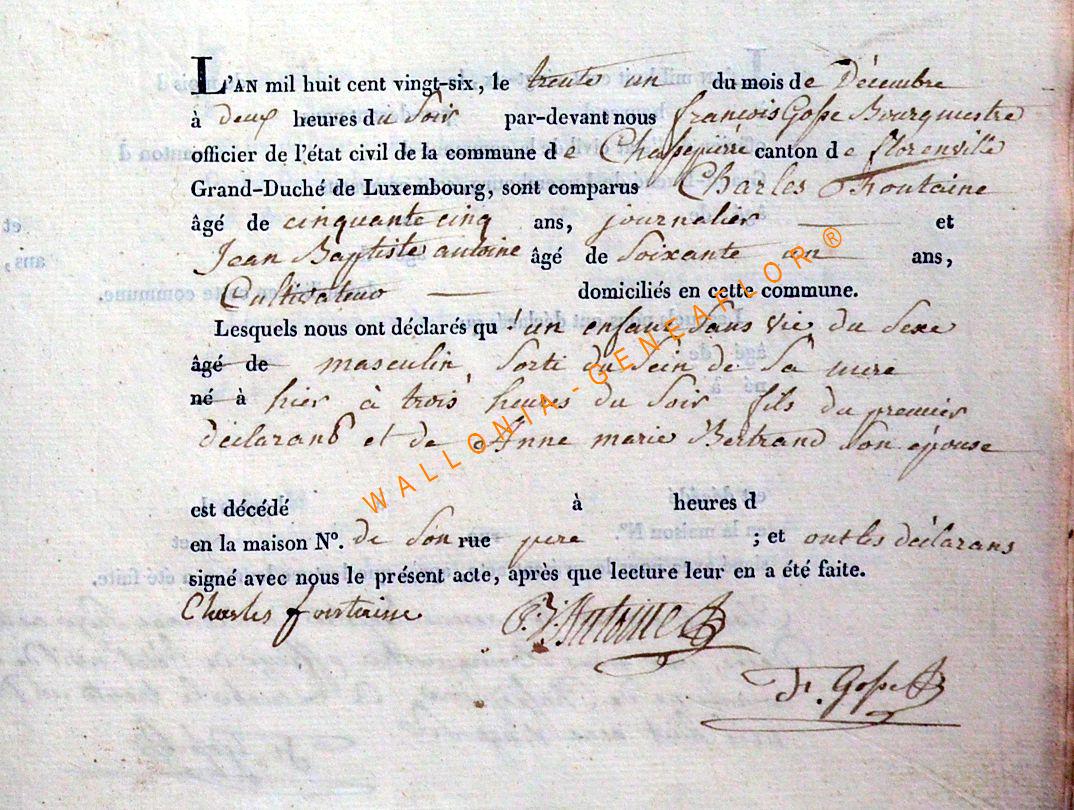 L'AN mil huit cent vingt-six, le trente un du mois de Décembre
à deux heures du Soir par-devant nous françois Gosse Bourgmestre
officier de l'état civil de la commune de Chassepierre canton de florenville
Grand-Duché de Luxembourg, sont comparus Charles Fontaine
âgé de cinquante cinq ans, journalier et
Jean Baptiste antoine âgé de Soixante un ans,
Cultivateur domiciliés en cette commune.
Lesquels nous ont déclarés qu'un enfant Sans vie du Sexe
âgé de masculin, Sorti du Sein de Sa mere
né à hier à trois heures du Soir fils du premier
déclarant et de Anne marie Bertrand Son épouse
est décédé à heures d
en la maison N°. de Son rue pere ; et ont les déclarans
signé avec nous le présent acte, après que lecture leur en a été faite.
Charles fontaine Antoine
F. Gosse
WALLONIA-GENEAFLOR ®